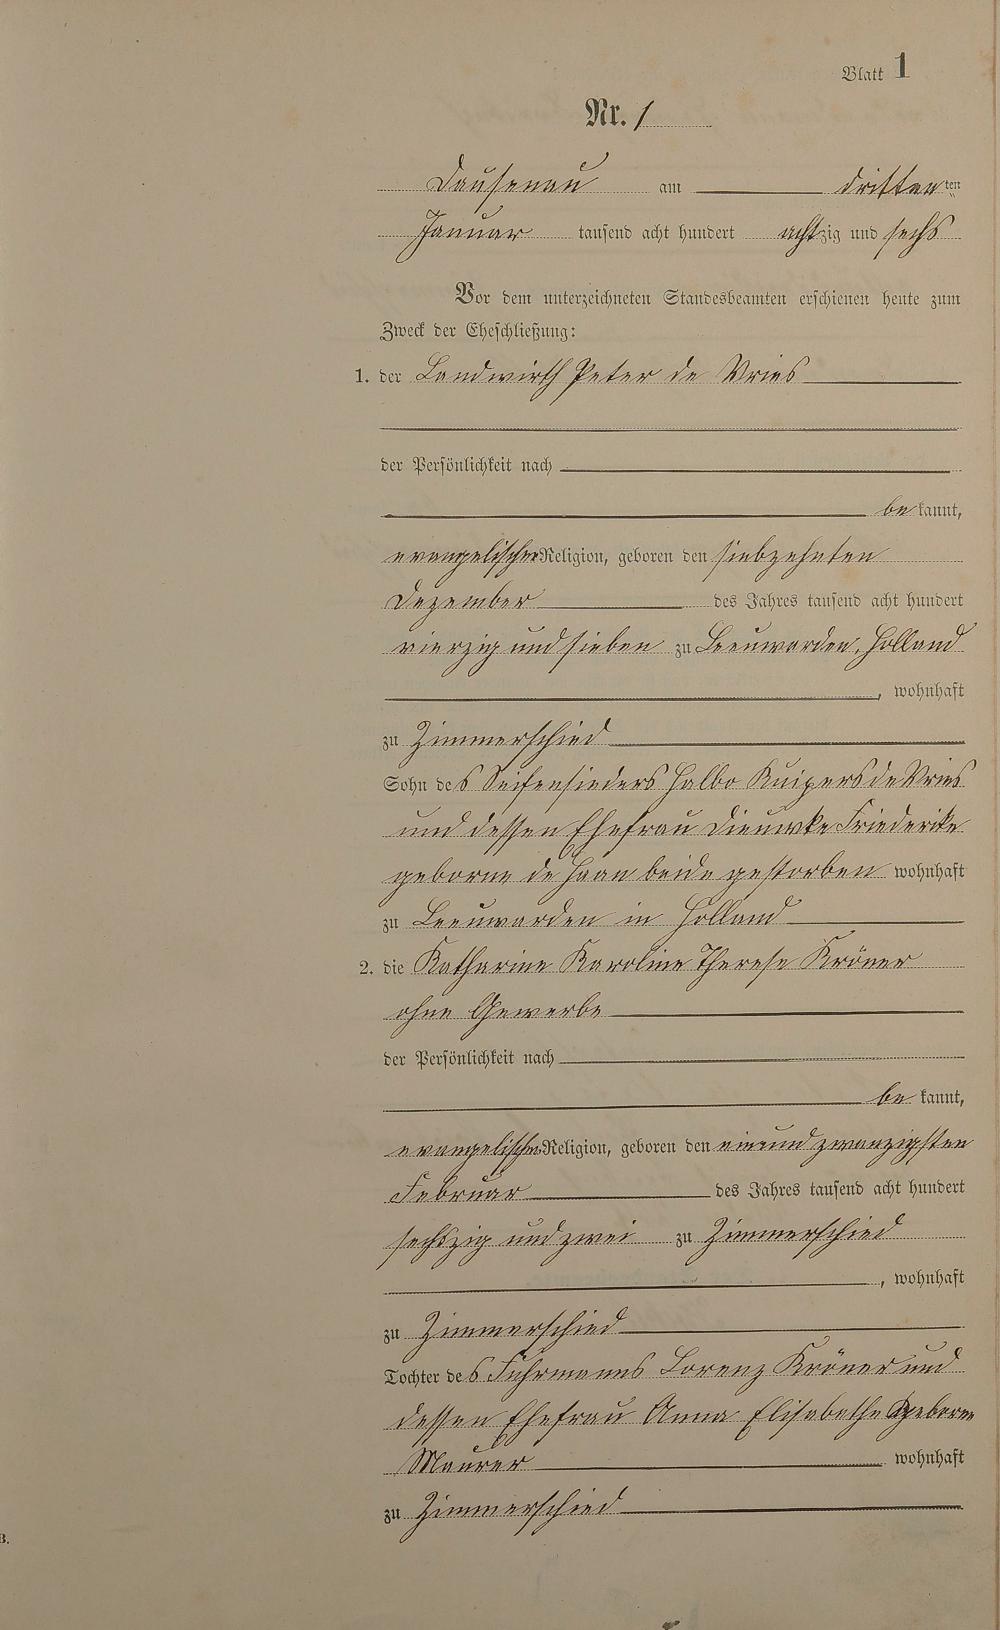 Blatt 1
Nr. 1
Dausenau am dritten ten
Januar tausend acht hundert achtzig und sechs
Vor dem unterzeichneten Standesbeamten erschienen heute zum
Zweck der Eheschließung:
1. der Landwirth Peter de Vries
der Persönlichkeit nach
be kannt,
evangelischer Religion, geboren den siebzehnten
Dezember des Jahres tausend acht hundert
vierzig und sieben zu Leeuwarden, Holland
, wohnhaft
zu Zimmerschied
Sohn des Seifensieders Halbo Kuipers de Vries
und dessen Ehefrau Dieuwke Friederike
geborne de Haan beide gestorben wohnhaft
zu Leeuwarden in Holland
2. die Katharine Karoline Therese Kröner
ohne Gewerbe
der Persönlichkeit nach
be kannt,
evangelischer Religion, geboren den einundzwanzigsten
Februar des Jahres tausend acht hundert
sechszig und zwei zu Zimmerschied
, wohnhaft
zu Zimmerschied
Tochter des Fuhrmanns Lorenz Kröner und
dessen Ehefrau Anna Elisabethe geborne
Maurer wohnhaft
zu Zimmerschied
B.